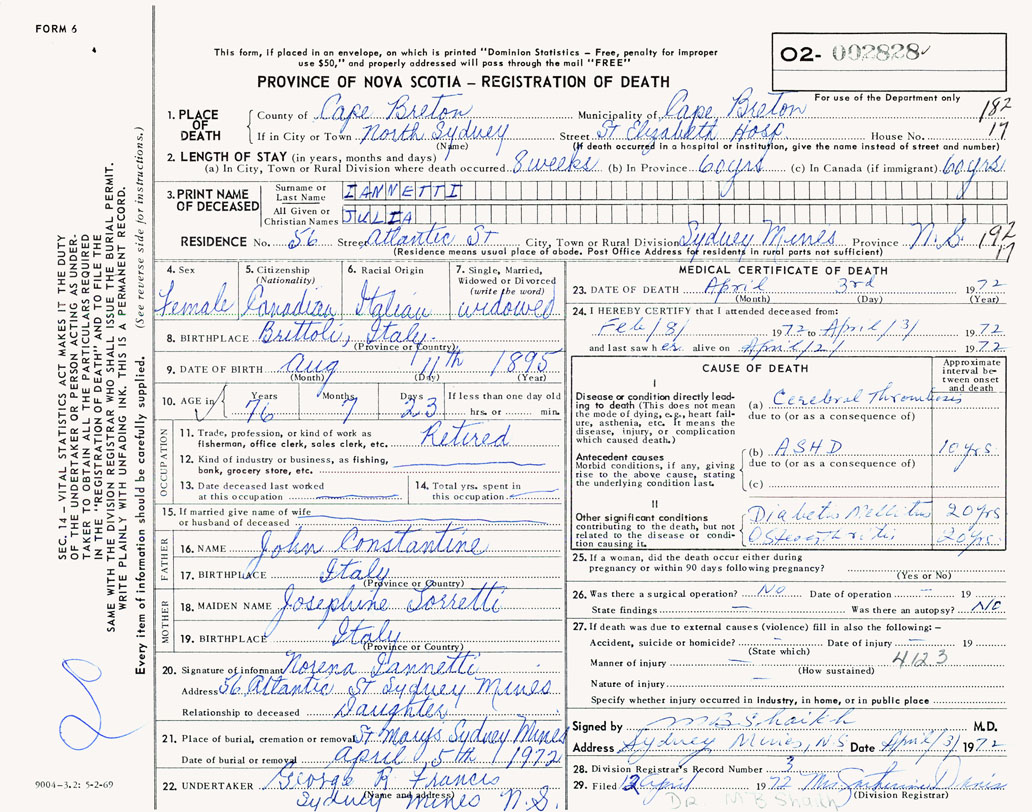 FORM 6
This form, If placed in an envelope, on which is printed "Dominion Statistics – Free, penalty for improper
use $50," and properly addressed will pass through the mail "FREE"
PROVINCE OF NOVA SCOTIA – REGISTRATION OF DEATH
02- 002828
For use of the Department only
182
17
1. PLACE OF DEATH
County of Cape Breton Municipality of Cape Breton
If in City or Town North Sydney Street St Elizabeth Hosp House No.
(Name) (If death occurred in a hospital or institution, give the name instead of street and number)
2. LENGTH OF STAY (in years, months and days)
(a) In City, Town or Rural Division where death occurred 8 weeks (b) In Province 60 yrs (c) In Canada (if immigrant) 60 yrs
3. PRINT NAME OF DECEASED
Surname or Last Name IANNETTI
All Given or Christian Names JULIA
RESIDENCE No. 56 Street Atlantic St City, Town or Rural Division Sydney Mines Province N.S. 192
17
(Residence means usual place of abode. Post Office Address for residents in rural parts not sufficient)
4. Sex
Female
5. Citizenship
(Nationality)
Canadian
6. Racial Origin
Italian
7. Single, Married,
Widowed or Divorced
(write the word)
widowed
8. BIRTHPLACE Brittoli, Italy.
(Province or Country)
9. DATE OF BIRTH Aug 11th 1895
(Month) (Day) (Year)
10. AGE in Years 76 Months 7 Days 23 If less than one day old
hrs. or min.
OCCUPATION
11. Trade, profession, or kind of work as
fisherman, office clerk, sales clerk, etc. Retired
12. Kind of industry or business, as fishing,
bank, grocery store, etc.
13. Date deceased last worked
at this occupation
14. Total yrs. spent in
this occupation
15. If married give name of wife
or husband of deceased
FATHER
16. NAME John Constantine
17. BIRTHPLACE Italy
(Province or Country)
MOTHER
18. MAIDEN NAME Josephine Sorretti
19. BIRTHPLACE Italy
(Province or Country)
20. Signature of informant Norena Iannetti
Address 56 Atlantic St Sydney Mines
Relationship to deceased Daughter
21. Place of burial, cremation or removal St Marys Sydney Mines
Date of burial or removal April 5th 1972
22. UNDERTAKER George R Francis
(Name and address)
Sydney Mines N.S.
MEDICAL CERTIFICATE OF DEATH
23. DATE OF DEATH April 3rd 1972
(Month) (Day) (Year)
24. I HEREBY CERTIFY that I attended deceased from:
Feb/8/ 1972 to April/3/ 1972
and last saw her alive on April/2/ 1972
CAUSE OF DEATH
Approximate
interval be-
tween onset
and death
I
Disease or condition directly lead-
ing to death (This does not mean
the mode of dying, e.g., heart fail-
ure, asthenia, etc. It means the
disease, injury, or complication
which caused death.)
(a) Cerebral Thrombosis
due to (or as a consequence of)
Antecedent causes
Morbid conditions, if any, giving
rise to the above cause, stating
the underlying condition last.
(b) ASHD 10 yrs.
due to (or as a consequence of)
(c)
II
Other significant conditions
contributing to the death, but not
related to the disease or condi-
tion causing it.
Diabetes Mellitus 20 yrs
Osteoarthritis 20 yrs.
25. If a woman, did the death occur either during
pregnancy or within 90 days following pregnancy?
(Yes or No)
26. Was there a surgical operation? No Date of operation – 19
State findings – Was there an autopsy? No
27. If death was due to external causes (violence) fill in also the following:–
Accident, suicide or homicide? – Date of injury – 19
(State which)
Manner of injury – 4123
(How sustained)
Nature of injury –
Specify whether injury occurred in industry, in home, or in public place
Signed by M B Shaikh M.D.
Address Sydney Mines, NS Date April/3/ 1972
28. Division Registrar's Record Number 3
29. Filed 2 April 1972 Mrs
(Division Registrar)
Dr. M B Shaikh
SEC. 14 – VITAL STATISTICS ACT MAKES IT THE DUTY
OF THE UNDERTAKER OR PERSON ACTING AS UNDER-
TAKER TO OBTAIN ALL THE PARTICULARS REQUIRED
IN THE "REGISTRATION OF DEATH" AND TO FILE THE
SAME WITH THE DIVISION REGISTRAR WHO SHALL ISSUE THE BURIAL PERMIT.
WRITE PLAINLY WITH UNFADING INK. THIS IS A PERMANENT RECORD.
Every item of information should be carefully supplied. (See reverse side for instructions.)
20
9004-3.2: 5-2-69